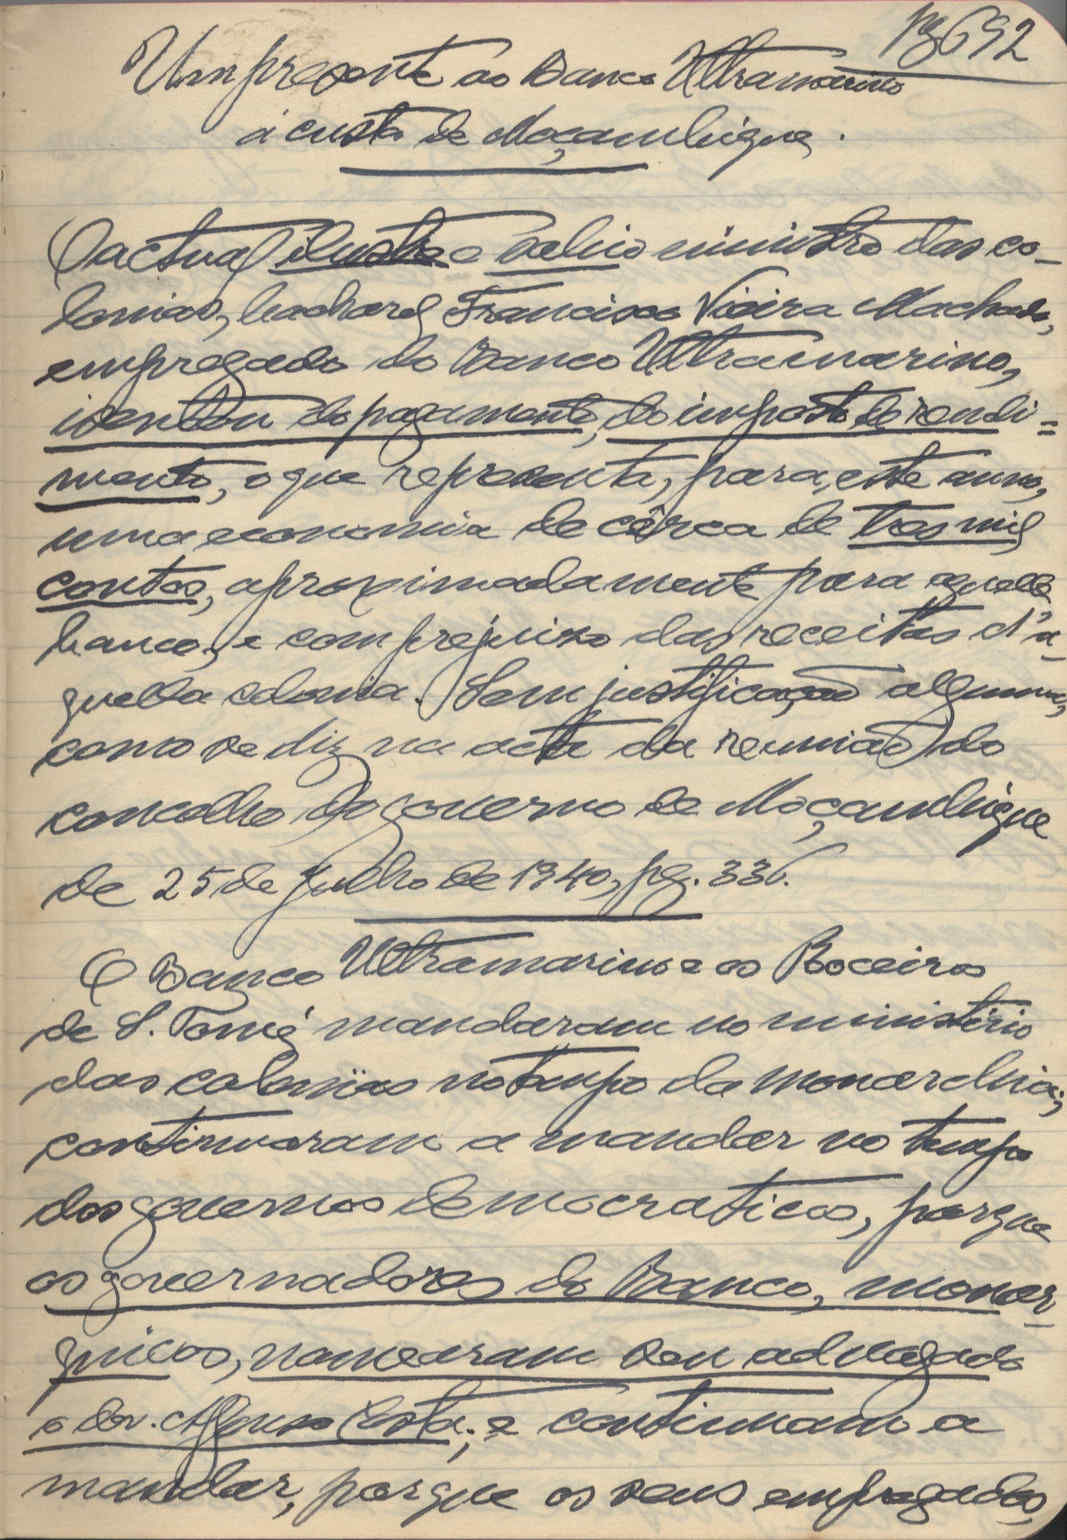 Pg 692
Um presente ao Banco Ultramarino
á custa de Moçambique.
O actual ilustre e sabio ministro das co-
lonias, bacharel Francisco Vieira Machado,
empregado do Banco Ultramarino,
isentou do pagamento, do imposto de rendi=
mento, o que representa, para, este anno,
uma economia de cêrca de tres mil
contos, aproximadamente para aquelle
banco, e com prejuizo das receitas d'a-
quella colonia. Sem justificação alguma,
como se diz na acta da reunião do
concelho do governo de Moçambique
de 25 de Julho de 1940, pg. 336.
O Banco Ultramarino e os Roceiros
de S. Tomé mandaram no ministério
das colonias no tempo da monarchia;
continuaram a mandar no tempo
dos governos democraticos, porque
os governadores do Banco, monar-
quicos, nomearam seu advogado
o dor. Afonso Costa; e continuam a
mandar, porque os seus empregados,